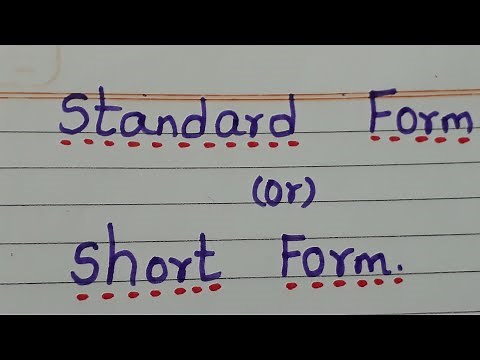 Standard Form
(or)
Short Form.